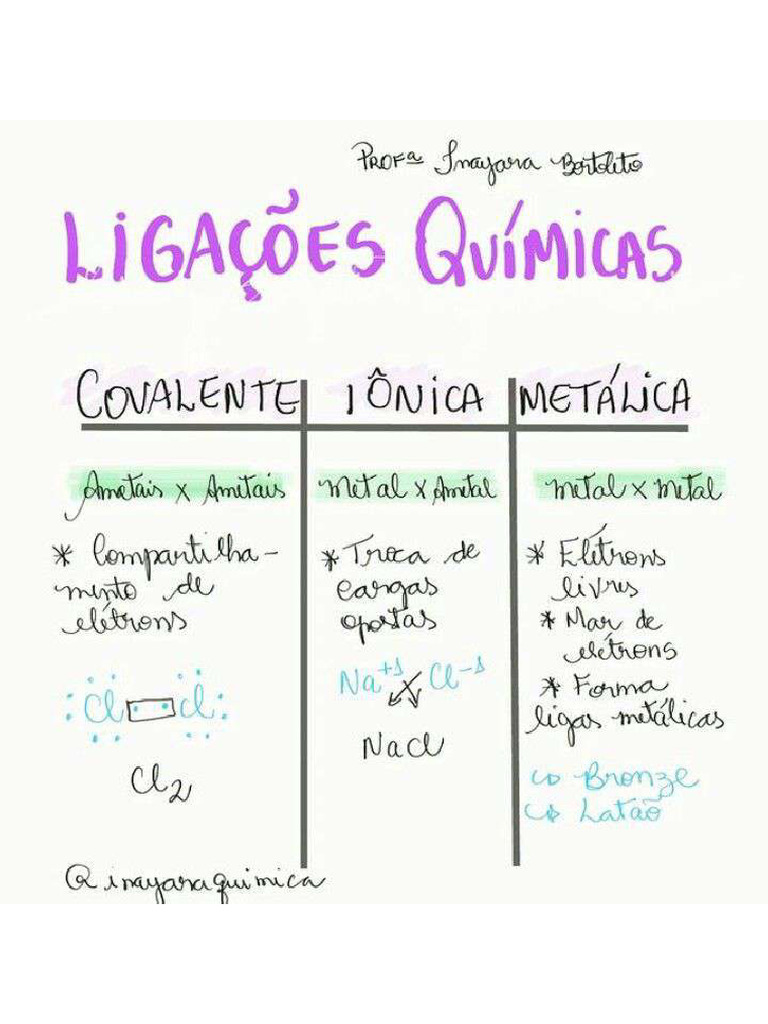 PROFª Inayara Bortoleto
LIGAÇÕES QUÍMICAS
COVALENTE
Ametais x Ametais
* Compartilha-
mento de
elétrons
Cl Cl
Cl2
IÔNICA
Metal x Ametal
* Troca de
cargas
opostas
Na+1 Cl-1
NaCl
METÁLICA
Metal x Metal
* Elétrons
livres
* Mar de
elétrons
* Forma
ligas metálicas
↳ Bronze
↳ Latão
@inayaraquimica